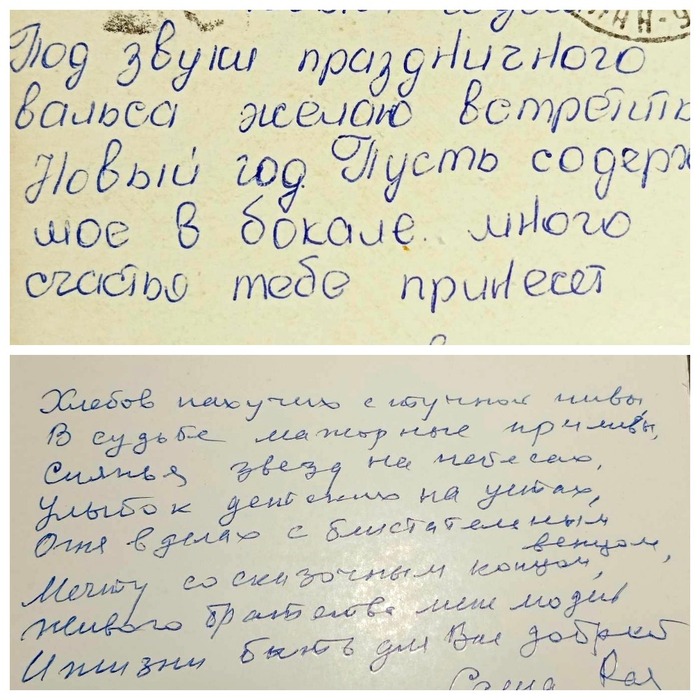 Под звуки праздничного
вальса желаю встретить
Новый год. Пусть содерж
мое в бокале много
счастья тебе принесет
Хлебов пахучих с тучной нивы,
В судьбе мажорные приливы,
Сиянья звезд на небесах,
Улыбок детских на устах,
Огня в делах с блистательным
венцом,
Мечту со сказочным концом,
Живого братства меж людей
И жизни быть для Вас добрей